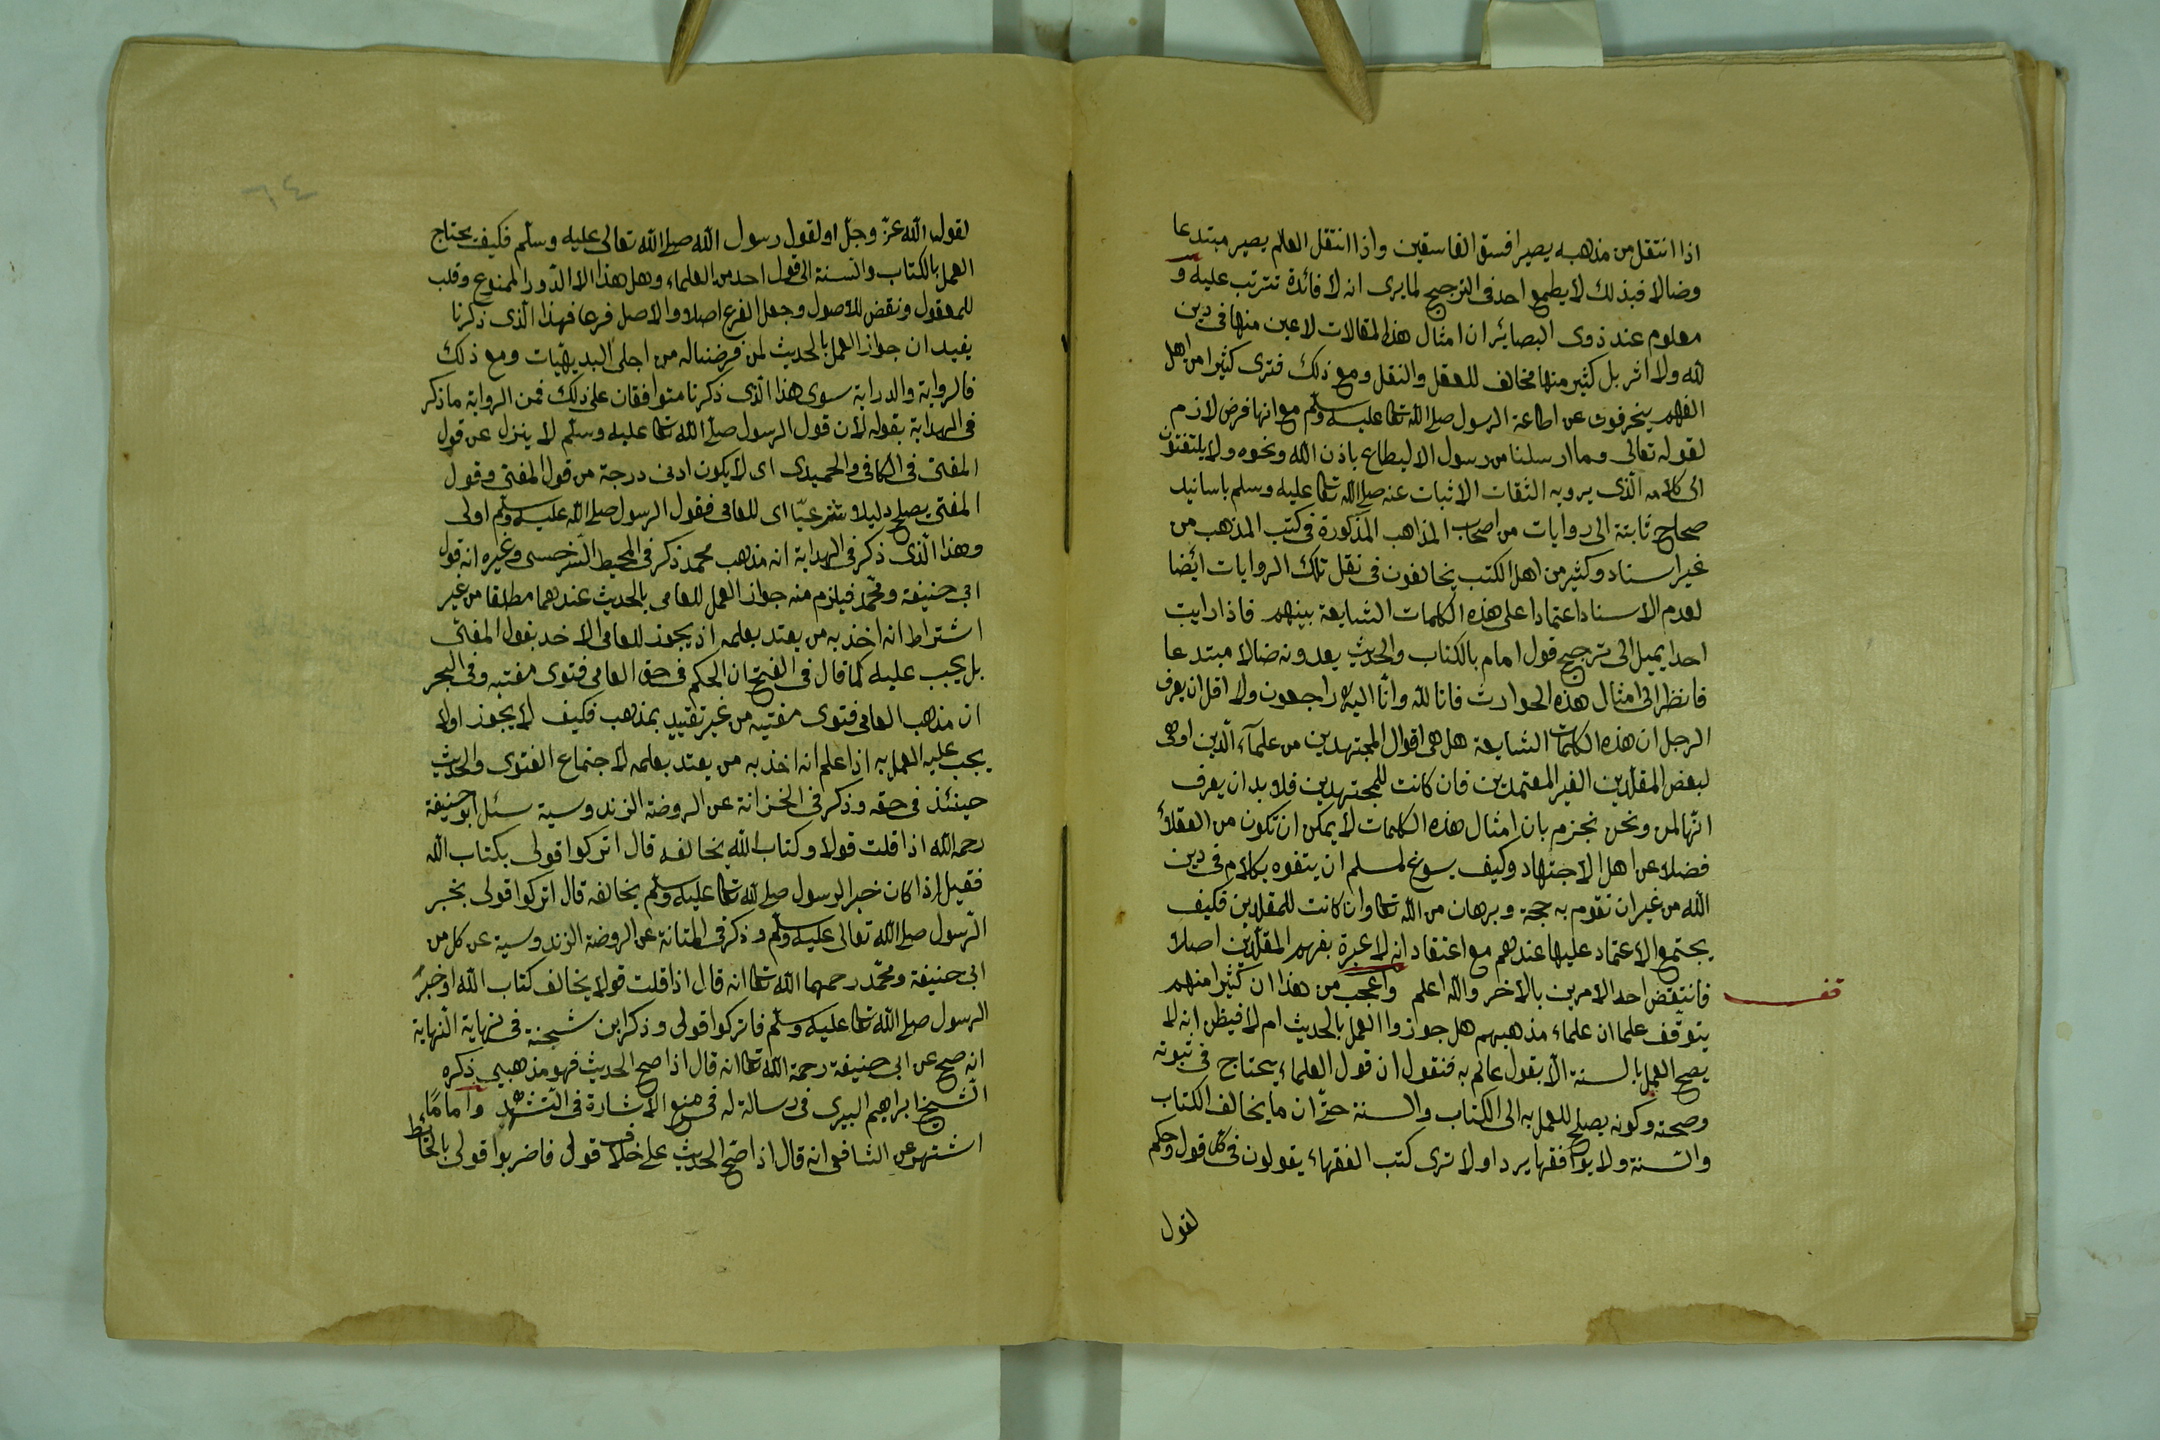 اذا انتقل من مذهبه يصير افسق الفاسقين واذا انتقل العالم يصير مبتدعا
وضالا فبذلك لا يطمع احد فى الترجيح لما يرى انه لا فائدة تترتب عليه و
معلوم عند ذوى البصائر ان امثال هذه المقالات لا عين منها فى دين
لله ولا اثر بل كثير منها مخالف للعقل والنقل ومع ذلك فترى كثيرا من اهل
الفهم ينحرفون عن اطاعة الرسول صلى الله تعا عليه وسلم مع انها فرض لازم
لقوله تعالى وما ارسلنا من رسول الا ليطاع باذن الله ونحوه ولا يلتفتون
الى كلامه الّذى يرويه الثقات الاثبات عنه صلى الله تعا عليه وسلم باسانيد
صحاح ثابتة الى روايات من اصحاب المذاهب المذكورة فى كتب المذهب من
غير اسناد وكثير من اهل الكتب يخالفون فى نقل تلك الروايات ايضا
لعدم الاسناد اعتمادا على هذه الكلمات الشايعة بينهم فاذا رايت
احدا يميل الى ترجيح قول امام بالكتاب والحديث يعدونه ضالا مبتدعا
فانظر الى امثال هذه الحوادث فانا لله وانّا اليه راجعون ولا اقل ان يعرف
الرجل ان هذه الكلمات الشايعة هل هى اقوال المجتهدين من علمآء الّدين او هى
لبعض المقلّدين الغير المعتمدين فان كانت للمجتهدين فلا بد ان يعرف
انّها لمن ونحن نجزم بان امثال هذه الكلمات لا يمكن ان تكون من العقلاء
فضلا عن اهل الاجتهاد وكيف يسوغ لمسلم ان يتفوه بكلام فى دين
الله من غير ان تقوم به حجة وبرهان من الله تعا وان كانت للمقلدين فكيف
يجتمع الاعتماد عليها عندهم مع اعتقاد انه لا عبرة بفهم المقلّدين اصلا
فانتقض احد الامرين بالاخر والله اعلم واعجب من هذا ان كثيرا منهم
قف
يتوقّف علما ان علماء مذهبهم هل جوزوا العمل بالحديث ام لا فيظن انه لا
يصح العمل بالسنة الّا بقول عالم به فنقول ان قول العلماء يحتاج فى ثبوته
وصحته وكونه يصلح للعمل به الى الكتاب والسنة حتّى ان ما يخالف الكتاب
والسّنة ولا يوافقها يرد اولا ترى كتب الفقهاء يقولون فى كل قول وحكم
لقول
٦٤
لقول الله عزّ وجلّ او لقول رسول الله صلى الله تعالى عليه وسلّم فكيف يحتاج
العمل بالكتاب والسنة الى قول احد من العلماء وهل هذا الا الدّور الممنوع وقلب
للمعقول ونقض للاصول وجعل الفرع اصلا والاصل فرعا فهذا الّذى ذكرنا
يفيد ان جواز العمل بالحديث لمن فرضناله من اجلى البديهيّات ومع ذلك
فالرواية والدراية سوى هذا الّذى ذكرنا متوافقان على ذلك فمن الرواية ما ذكر
فى الهداية بقوله لأن قول الرسول صلّى الله تعا عليه وسلّم لا ينزل عن قول
المفتى فى الكافى والحميدى اى لا يكون ادنى درجة من قول المفتى وقول
المفتى يصلح دليلا شرعيّا اى للعامى فقول الرسول صلى الله عليه وسلّم اولى
وهذا الّذى ذكر فى الهداية انه مذهب محمد ذكر فى المحيط السّرخسى وغيره انه قول
ابى حنيفة ومحمّد فيلزم منه جواز العمل للعامى بالحديث عندهما مطلقا من غير
اشتراط انه اخذ به من يعتد بعلمه اذ يجوز للعامى الاخد بقول المفتى
بل يجب عليه كما قال فى الفتح ان الحكم فى حق العامى فتوى مفتيه وفى البحر
ان مذهب العامى فتوى مفتيه من غير تقييد بمذهب فكيف لا يجوز اولا
يجب عليه العمل به اذا علم انه اخذ به من يعتد بعلمه لاجتماع الفتوى والحديث
حينئذ فى حقه وذكر فى الخزانة عن الروضة الزندوسية سئل ابو حنيفة
رحمه الله اذا قلت قولا وكتاب الله يخالفه قال اتركوا قولى بكتاب الله
فقيل اذا كان خبر الرسول صلى الله تعا عليه وسلّم يخالفه قال اتركوا قولى بخبر
الرّسول صلى الله تعالى عليه وسلّم وذكر فى المتانة عن الروضة الزندوسية عن كل من
ابى حنيفة ومحمّد رحمهما الله تعا انه قال اذا قلت قولا يخالف كتاب الله او خبر
الرسول صلى الله تعا عليه وسلّم فاتركوا قولى وذكر ابن شحنة فى نهاية النّهاية
انه صح عن ابى حنيفة رحمة الله تعا انه قال اذا صح الحديث فهو مذهبى ذكره
الشّيخ ابراهيم البيرى فى رسالة له فى منع الاشارة فى التّشهّد واما ما
اشتهر عن الشافعى انه قال اذا صحّ الحديث على خلاف قولى فاضربوا قولى بالحائط